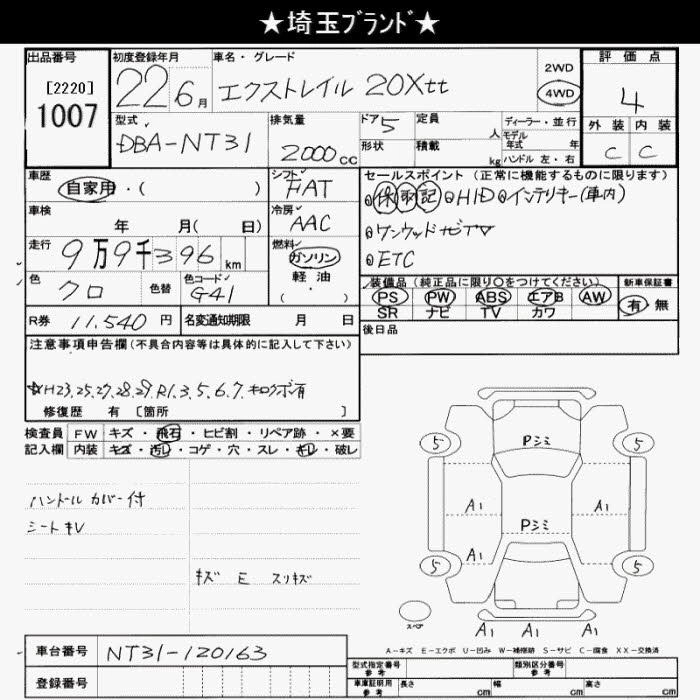 ★埼玉ﾌﾞﾗﾝﾄﾞ★
出品番号
[2220]
1007
初度登録年月
22 6月
車名・グレード
エクストレイル 20Xtt
2WD
4WD
評価点
4
外装 内装
C C
型式
DBA-NT31
排気量
2000cc
ドア 5
定員 人
形状
積載 kg
ディーラー・並行
モデル年式 年
ハンドル 左・右
車歴
自家用・( )
シフト
FAT
セールスポイント(正常に機能するものに限ります)
◎保取記◎HID◎インテリキー(車内)
◎ケンウッドナビTV
◎ETC
車検
年 月( 日)
冷房
AAC
走行
9万9千396km
燃料
ガソリン
軽油
( ・ )
色
クロ
色替
色コード
G41
装備品(純正品に限り〇をつけてください)
PS PW ABS エアB AW
SR ナビ TV カワ
新車保証書
有・無
R券 11.540円
名変通知期限 月 日
後日品
注意事項申告欄(不具合内容等は具体的に記入して下さい)
☆H23.25.27.28.29.R1.3.5.6.7.キロクボ有
修復歴 有 [箇所 ]
検査員記入欄
FW キズ・飛石・ヒビ割・リペア跡・×要
内装 キズ・汚レ・コゲ・穴・スレ・キレ・破レ
ハンドルカバー付
シートキレ
キズ E スリキズ
Pシミ
5 5
A1 A1
Pシミ
A1
5 5
スペア
A1 A1 A1
A-キズ E-エクボ U-凹み W-補修跡 S-サビ C-腐食 XX-交換済
車台番号 NT31-120163
登録番号
型式指定番号 参考
類別区分番号 参考
車庫証明用 参考
長さ cm 幅 cm 高さ cm